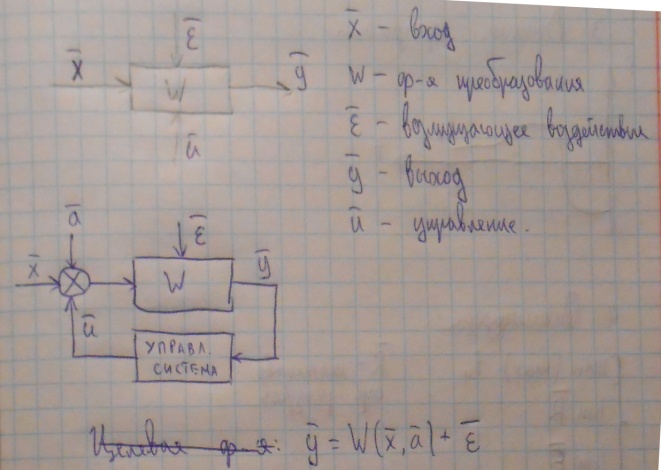 ε̄
x̄
W
ȳ
ū
x̄ - вход
W - ф-я преобразования
ε̄ - возмущающее воздействие
ȳ - выход
ū - управление.
ā
ε̄
x̄
W
ȳ
ū
УПРАВЛ.
СИСТЕМА
Целевая ф-я: ȳ = W(x̄, ā) + ε̄